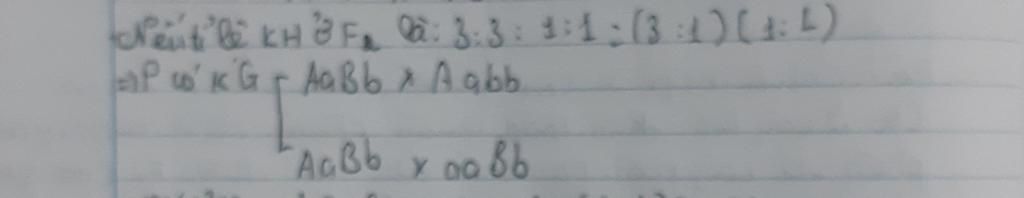 Nếu tỉ lệ KH ở F₂ là: 3:3:1:1 = (3:1)(1:1)
=> P có KG AaBb x Aabb
AaBb x aaBb